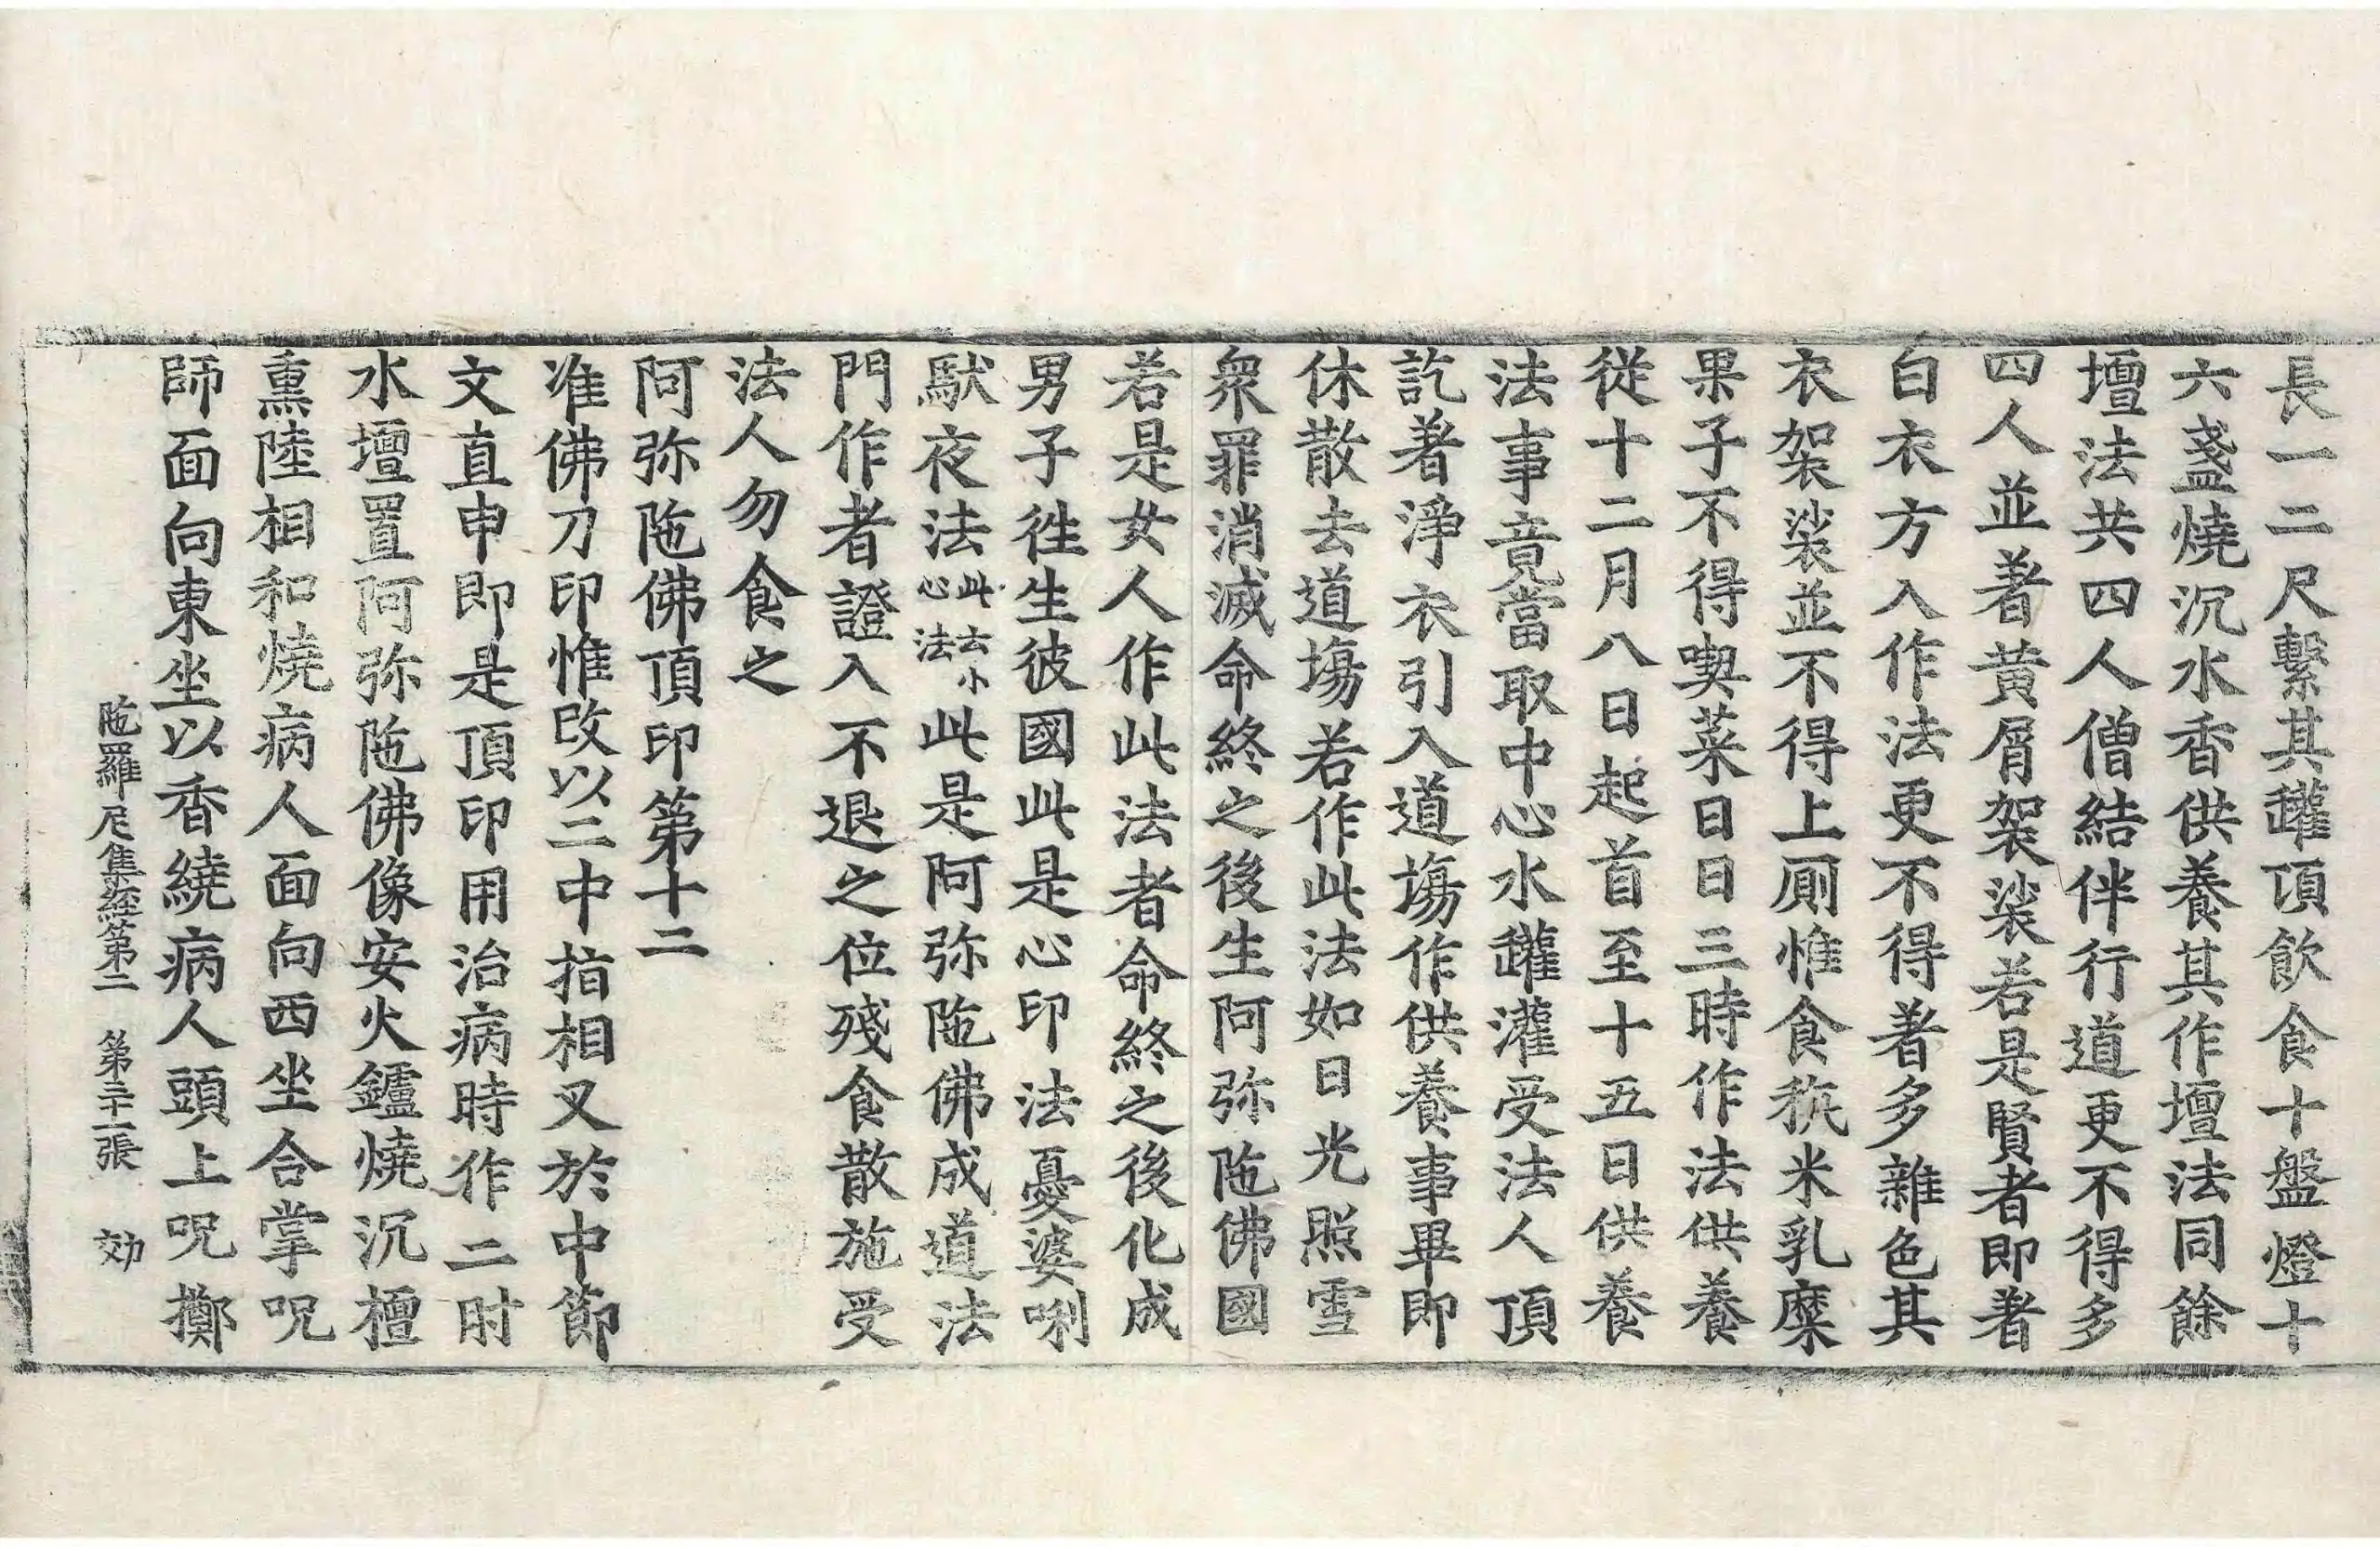 長一二尺繫其罐頂飲食十盤燈十
六盞燒沉水香供養其作壇法同餘
壇法共四人僧結伴行道更不得多
四人並著黃屑袈裟若是賢者即著
白衣方入作法更不得著多雜色其
衣袈裟並不得上厠惟食秔米乳糜
果子不得喫菜日日三時作法供養
從十二月八日起首至十五日供養
法事竟當取中心水罐灌受法人頂
訖著淨衣引入道塲作供養事畢即
休散去道塲若作此法如日光照雪
衆罪消滅命終之後生阿弥陁佛國
若是女人作此法者命終之後化成
男子徃生彼國此是心印法憂婆唎
馱夜法此云小心法此是阿弥陁佛成道法
門作者證入不退之位殘食散施受
法人勿食之
阿弥陁佛頂印第十二
准佛刀印惟改以二中指相叉於中節
文直申即是頂印用治病時作二肘
水壇置阿弥陁佛像安火鑪燒沉檀
熏陸相和燒病人面向西坐合掌呪
師面向東坐以香繞病人頭上呪擲
陁羅尼集經第二　第三十二張　効